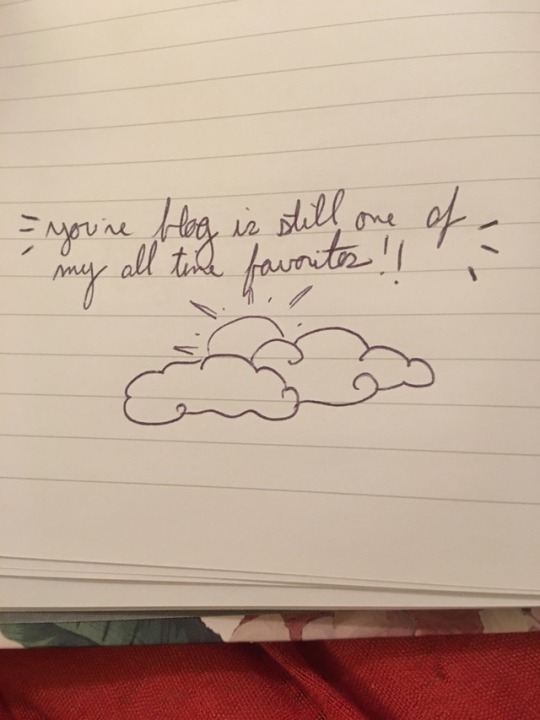 you're blog is still one of
my all time favorites!!